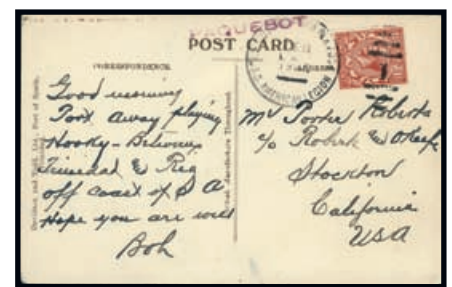 PAQUEBOT
POST CARD
CORRESPONDENCE.
Good morning
Port away playing
Hooky - Between
Trinidad &
off coast of S A
Hope you are well
Bob
AMERICAN LEGION
Mr Porter Roberts
c/o Roberts & O'Keefe
Stockton
California
USA